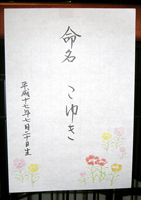 命名 こゆき
平成十七年七月二十日生